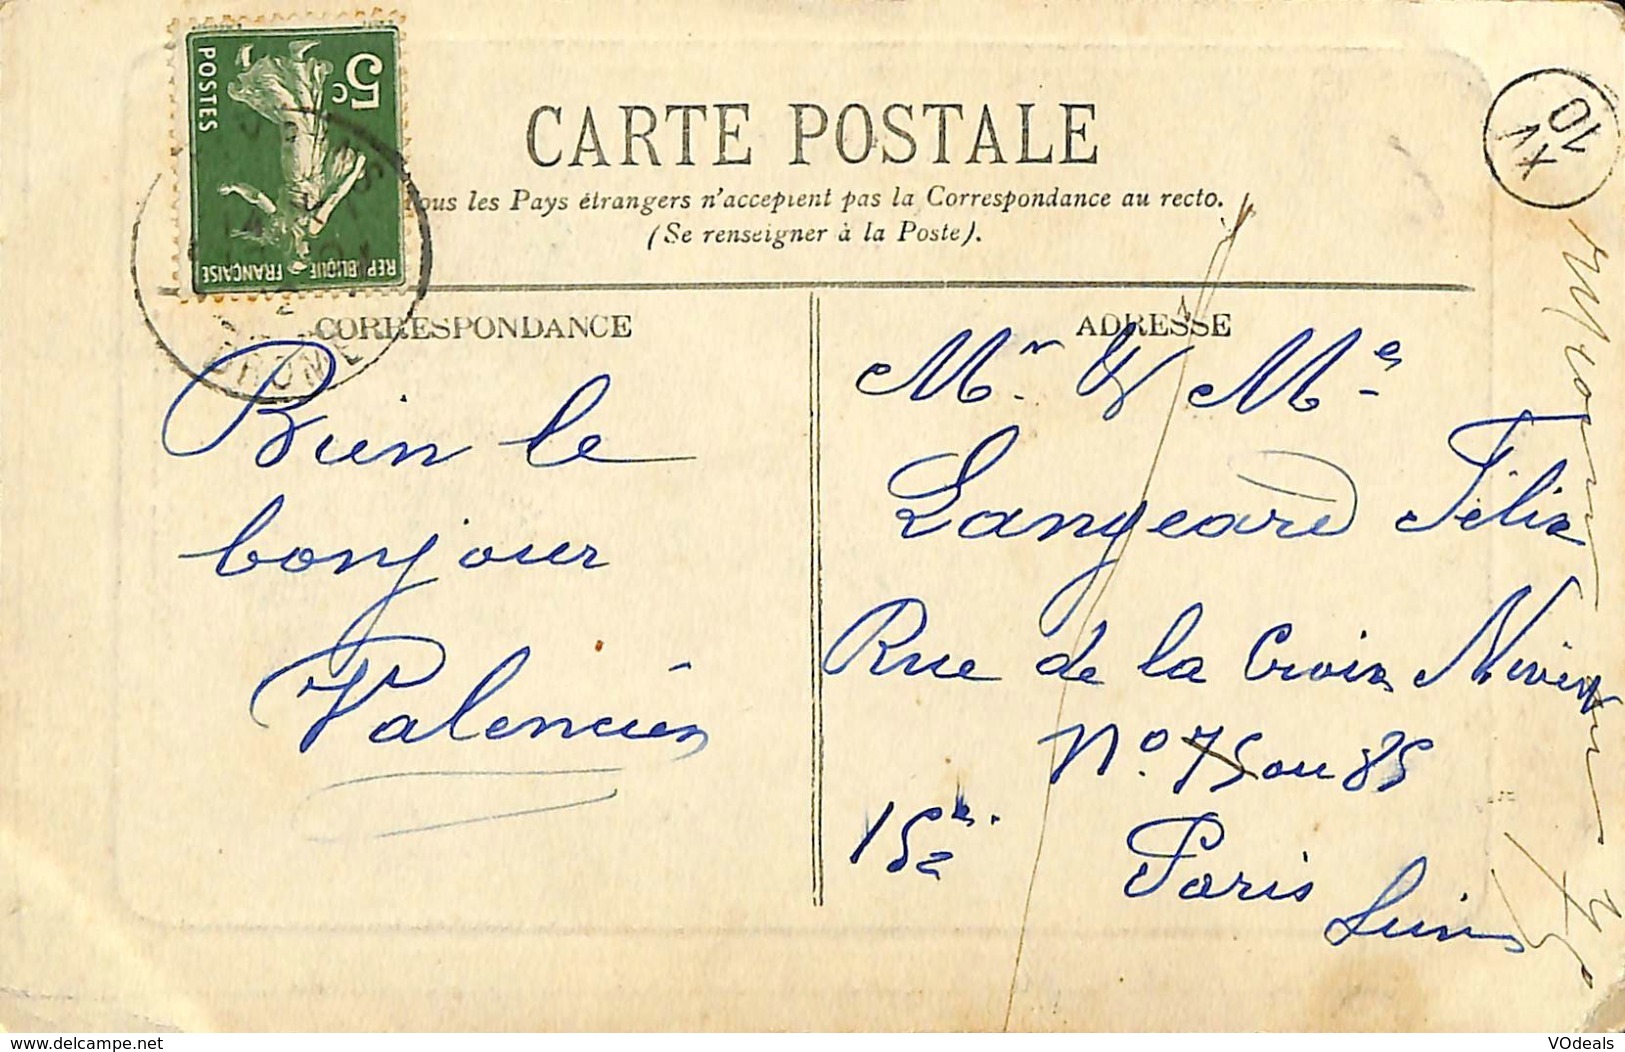 5c
POSTES
REPUBLIQUE FRANÇAISE
DROME
XV
10
CARTE POSTALE
Tous les Pays étrangers n'acceptent pas la Correspondance au recto.
(Se renseigner à la Poste).
CORRESPONDANCE
Bien le
bonjour
Valenciés
ADRESSE
Mr & Me
Langeard Félix
Rue de la Croix Nivert
No. 75 ou 85
15e
Paris
Seine
www.delcampe.net
VOdeals